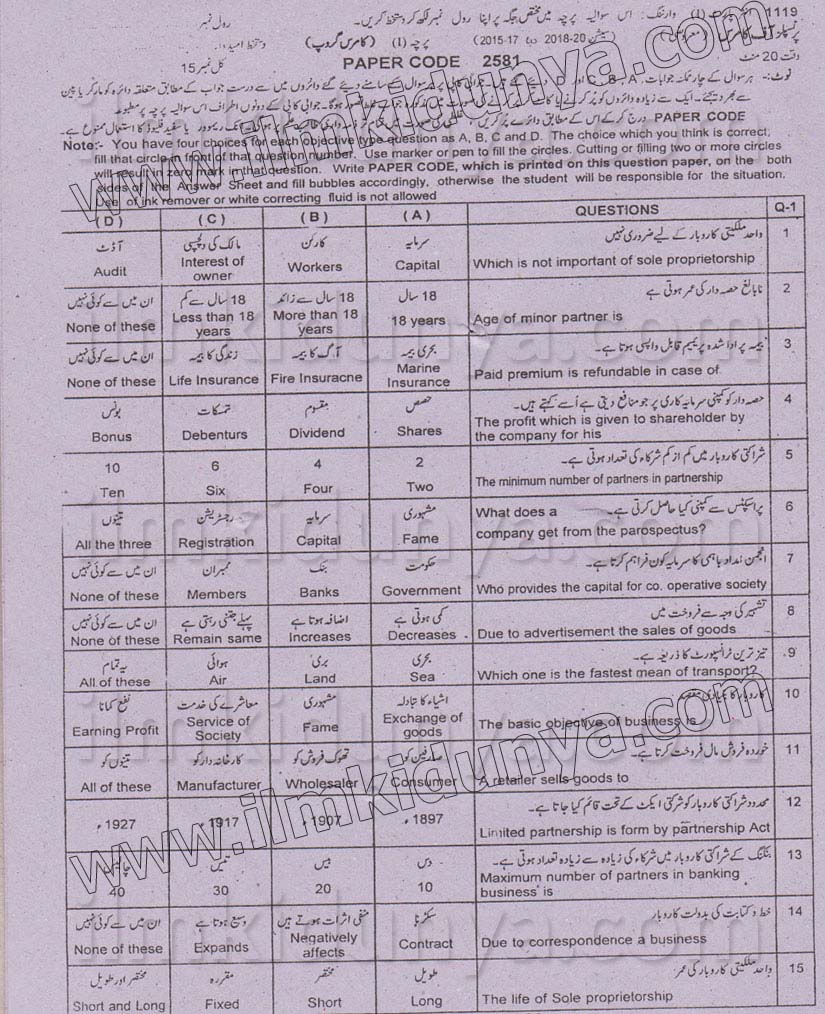 1119 وارننگ:۔ اس سوالیہ پرچہ میں مختص جگہ پر اپنا رول نمبر لکھ کر دستخط کریں۔ رول نمبر
پرنسپلز آف کامرس (معروضی) (سیشن 20-2018 تا 17-2015) پرچہ (I) (کامرس گروپ) دستخط امیدوار
وقت 20 منٹ PAPER CODE 2581 کل نمبر 15
نوٹ:۔ ہر سوال کے چار ممکنہ جوابات A، B، C اور D دیئے گئے ہیں۔ جوابی کاپی پر ہر سوال کے سامنے دیئے گئے دائروں میں سے درست جواب کے مطابق متعلقہ دائرہ کو مارکر یا پین
سے بھر دیجئے۔ ایک سے زیادہ دائروں کو پُر کرنے یا کاٹ کر پُر کرنے کی صورت میں مذکورہ جواب غلط تصور ہوگا۔ جوابی کاپی کے دونوں اطراف اس سوالیہ پرچہ پر مطبوعہ
PAPER CODE درج کر کے اس کے مطابق دائرے پُر کریں۔ غلطی کی صورت میں تمام تر ذمہ داری طالب علم پر ہوگی۔ انک ریموور یا سفید فلیوڈ کا استعمال ممنوع ہے۔
Note:- You have four choices for each objective type question as A, B, C and D. The choice which you think is correct,
fill that circle in front of that question number. Use marker or pen to fill the circles. Cutting or filling two or more circles
will result in zero mark in that question. Write PAPER CODE, which is printed on this question paper, on the both
sides of the Answer Sheet and fill bubbles accordingly, otherwise the student will be responsible for the situation.
Use of ink remover or white correcting fluid is not allowed
( D ) ( C ) ( B ) ( A ) QUESTIONS Q-1
آڈٹ مالک کی دلچسپی کارکن سرمایہ واحد ملکیتی کاروبار کے لیے ضروری نہیں 1
Audit Interest of owner Workers Capital Which is not important of sole proprietorship
ان میں سے کوئی نہیں 18 سال سے کم 18 سال سے زائد 18 سال نابالغ حصہ دار کی عمر ہوتی ہے 2
None of these Less than 18 years More than 18 years 18 years Age of minor partner is
ان میں سے کوئی نہیں زندگی کا بیمہ آگ کا بیمہ بحری بیمہ بیمہ پر ادا شدہ پریمیم قابل واپسی ہوتا ہے۔ 3
None of these Life Insurance Fire Insuracne Marine Insurance Paid premium is refundable in case of
بونس تمسکات مقسوم حصص حصہ دار کو کمپنی سرمایہ کاری پر جو منافع دیتی ہے اُسے کہتے ہیں۔ 4
Bonus Debenturs Dividend Shares The profit which is given to shareholder by
the company for his
10 6 4 2 شراکتی کاروبار میں کم از کم شرکاء کی تعداد ہوتی ہے۔ 5
Ten Six Four Two The minimum number of partners in partnership
تینوں رجسٹریشن سرمایہ مشہوری پراسپکٹس سے کمپنی کیا حاصل کرتی ہے۔ What does a 6
All the three Registration Capital Fame company get from the parospectus?
ان میں سے کوئی نہیں ممبران بنک حکومت انجمن امداد باہمی کا سرمایہ کون فراہم کرتا ہے۔ 7
None of these Members Banks Government Who provides the capital for co. operative society
ان میں سے کوئی نہیں پہلے جتنی رہتی ہے اضافہ ہوتا ہے کمی ہوتی ہے تشہیر کی وجہ سے فروخت میں 8
None of these Remain same Increases Decreases Due to advertisement the sales of goods
یہ تمام ہوائی بری بحری تیز ترین ٹرانسپورٹ کا ذریعہ ہے۔ 9
All of these Air Land Sea Which one is the fastest mean of transport?
نفع کمانا معاشرے کی خدمت مشہوری اشیاء کا تبادلہ کاروبار کا بنیادی مقصد 10
Earning Profit Service of Society Fame Exchange of goods The basic objective of business is
تینوں کو کارخانہ دار کو تھوک فروش کو صارفین کو خوردہ فروش مال فروخت کرتا ہے۔ 11
All of these Manufacturer Wholesaler Consumer A retailer sells goods to
1927ء 1917ء 1907ء 1897ء محدود شراکتی کاروبار کو شرکتی ایکٹ کے تحت قائم کیا جاتا ہے۔ 12
Limited partnership is form by partnership Act
چالیس تیس بیس دس بنکنگ کے شراکتی کاروبار میں شرکاء کی زیادہ سے زیادہ تعداد ہوتی ہے۔ 13
40 30 20 10 Maximum number of partners in banking
business is
ان میں سے کوئی نہیں وسیع ہوتا ہے منفی اثرات ہوتے ہیں سکڑنا خط و کتابت کی بدولت کاروبار 14
None of these Expands Negatively affects Contract Due to correspondence a business
مختصر اور طویل مقررہ مختصر طویل واحد ملکیتی کاروبار کی عمر 15
Short and Long Fixed Short Long The life of Sole proprietorship
www.ilmkidunya.com
www.ilmkidunya.com